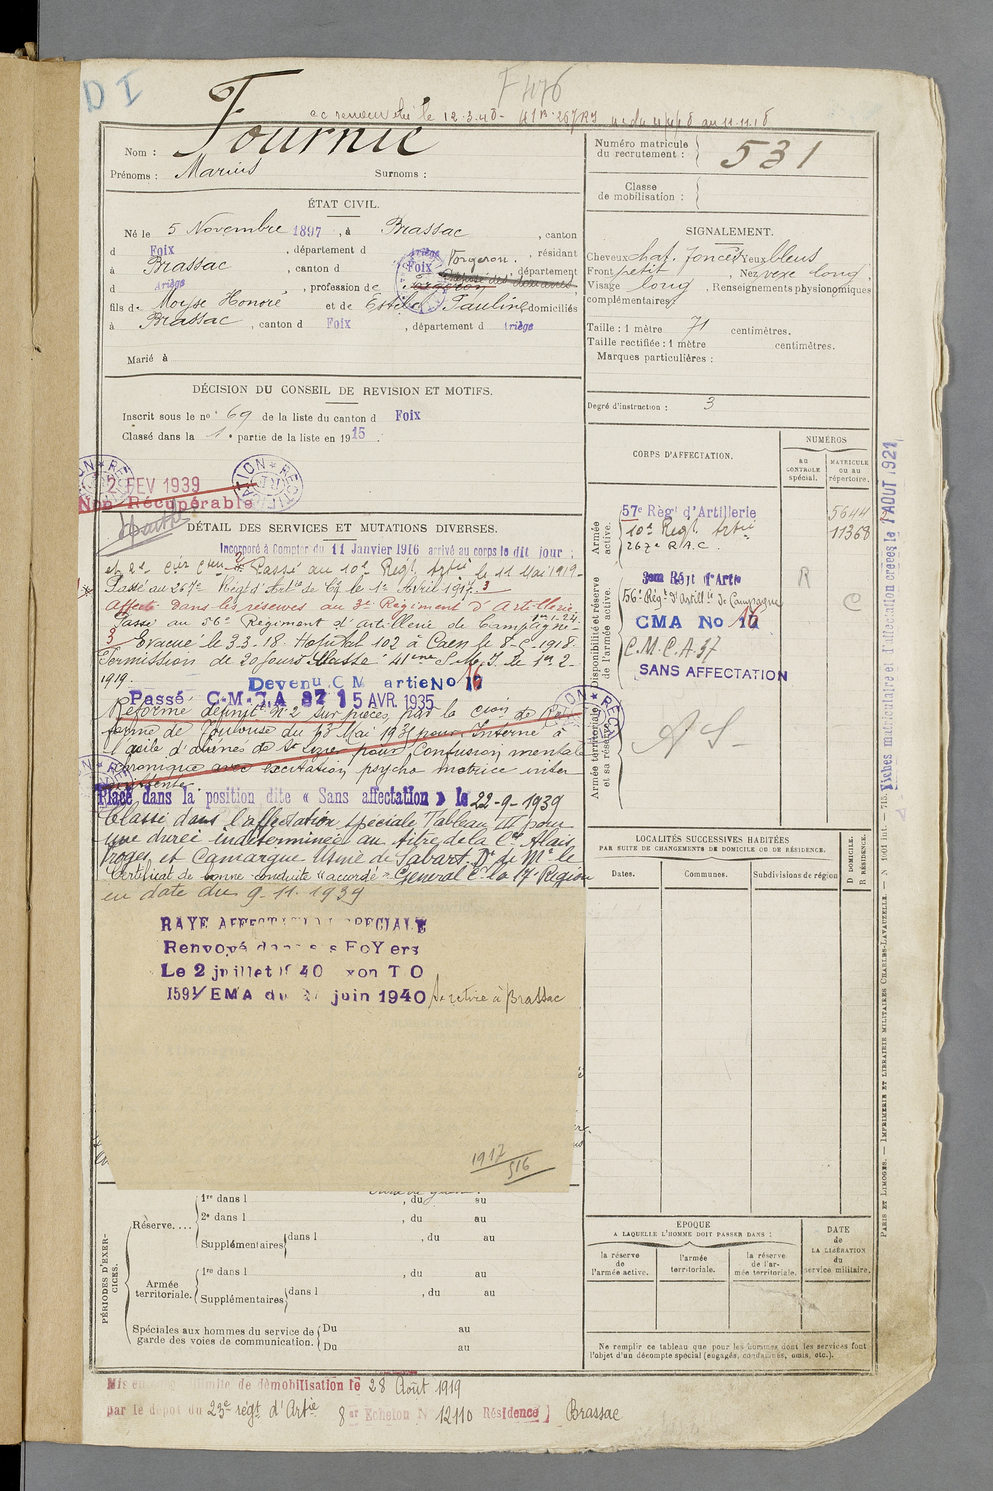 D I
F 476
12.3.40
Nom : Fournié
Prénoms : Marius Surnoms :
Numéro matricule
du recrutement : 531
Classe
de mobilisation :
ÉTAT CIVIL.
Né le 5 Novembre 1897, à Brassac, canton
d Foix, département d Ariège, résidant
à Brassac, canton d Foix, département
d Ariège, profession de Forgeron.
fils de Moyse Honoré et de Estèbe Pauline domiciliés
à Brassac, canton d Foix, département d Ariège
Marié à
SIGNALEMENT.
Cheveux chat. foncés Yeux bleus
Front petit, Nez vexe long
Visage long, Renseignements physionomiques
complémentaires
Taille : 1 mètre 71 centimètres.
Taille rectifiée : 1 mètre centimètres.
Marques particulières :
Degré d'instruction : 3
DÉCISION DU CONSEIL DE REVISION ET MOTIFS.
Inscrit sous le n° 69 de la liste du canton d Foix
Classé dans la 1e partie de la liste en 1915.
2 FEV 1939
Non Récupérable
RECTIFICATION
DÉTAIL DES SERVICES ET MUTATIONS DIVERSES.
Incorporé à Compter du 11 Janvier 1916 arrivé au corps le dit jour
et 2e cer con Passé au 10e Regt Artie le 11 Mai 1919
Passé au 267e Regt d'Artie de Cg le 1er Avril 1917.
Affecté dans les réserves au 3e Régiment d'Artillerie.
Passé au 56e Regiment d'artillerie de Campagne 1er-1-24
Evacué le 3.3.18. Hopital 102 à Caen le
Permission de 20 jours Classe 41eme le 1er 2-
1919.
Devenu C M artie No 16
Passé C.M.C.A 37 15 AVR. 1935
Réformé définitif n° 2 sur pièces par la Cion de Ré
forme de Toulouse du 13 Mai 1935 pour Interné à
l'asile d'aliénés de St Lizier pour Confusion mentale
chronique avec excitation psycho motrice inter
mittente.
Placé dans la position dite « Sans affectation » le 22-9-1939
Classé dans l'affectation spéciale Tableau III pour
une durée indéterminée au titre de la Cie Alais
Froges et Camargue Usine de Sabart. Dn de Mr le
Certificat de bonne conduite "accordé" Général Ct la 17e Région
en date du 9.11.1939
RAYE AFFECTATION SPECIALE
Renvoyé dans ses FoYers
Le 2 juillet 1940 TO
1591/EMA du juin 1940 Se retire à Brassac
1917
516
CORPS D'AFFECTATION.
NUMÉROS
au
CONTROLE
spécial.
MATRICULE
ou au
répertoire.
Armée
active.
57e Règt d'Artillerie 5644
10e Regt Artie 11368
267e R.A.C.
Disponibilité et réserve
de l'armée active.
3em Régt d'Artie R
56e Régt d'Artillie de Campagne C
CMA No 16
C.M.C.A. 37
SANS AFFECTATION
Armée territoriale
et sa réserve.
A S -
Fiches matriculaire et d'affectation créées le 1 AOUT 1921
LOCALITÉS SUCCESSIVES HABITÉES
PAR SUITE DE CHANGEMENTS DE DOMICILE OU DE RÉSIDENCE.
Dates. Communes. Subdivisions de région
D DOMICILE.
R RÉSIDENCE.
PARIS ET LIMOGES. — IMPRIMERIE ET LIBRAIRIE MILITAIRES CHARLES-LAVAUZELLE.
PÉRIODES D'EXERCICES.
Réserve....
1re dans l , du au
2e dans l , du au
Supplémentaires dans l , du au
Armée
territoriale.
1re dans l , du au
Supplémentaires dans l , du au
Spéciales aux hommes du service de
garde des voies de communication.
Du au
Du au
ÉPOQUE
A LAQUELLE L'HOMME DOIT PASSER DANS :
la réserve
de l'armée active.
l'armée
territoriale.
la réserve
de l'ar-
mée territoriale.
DATE
de
LA LIBÉRATION
du
service militaire.
Ne remplir ce tableau que pour les hommes dont les services font
l'objet d'un décompte spécial (engagés, condamnés, omis, etc.).
Mis en congé illimité de démobilisation le 28 Août 1919
par le dépôt du 23e régt d'Artie 8er Echelon N 12110 Résidence } Brassac